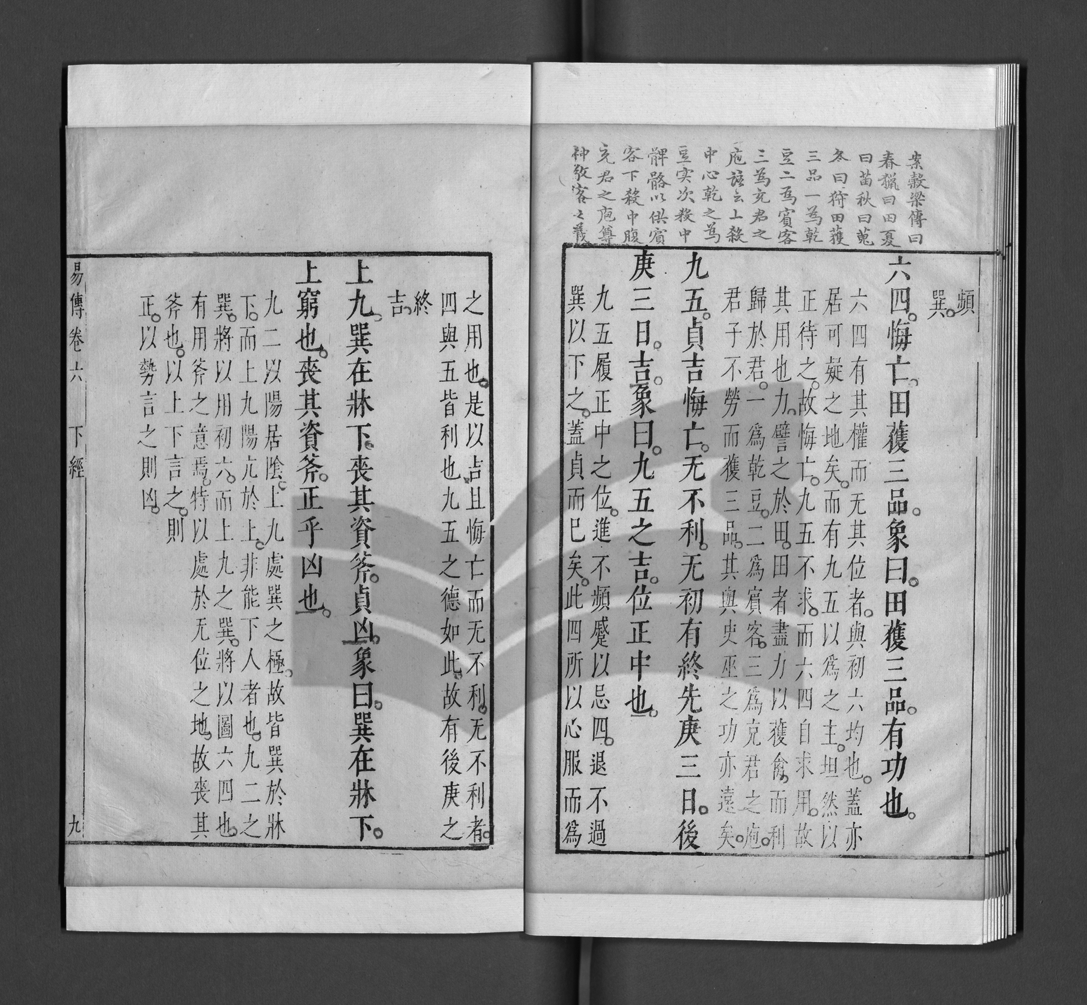 案穀梁傳曰
春獵曰田夏
曰苗秋曰蒐
冬曰狩田獲
三品一為乾
豆二為賓客
三為充君之
庖註云上殺
中心乾之為
豆實次殺中
髀骼以供賓
客下殺中腹
充君之庖尊
神敬客之義
頻
巽
六四悔亡田獲三品象曰田獲三品有功也
六四有其權而无其位者與初六均也蓋亦
居可疑之地矣而有九五以爲之主坦然以
正待之故悔亡九五不求而六四自求用故
其用也力譬之於田田者盡力以獲禽而利
歸於君一爲乾豆二爲賓客三爲充君之庖
君子不勞而獲三品其與史巫之功亦遠矣
九五貞吉悔亡无不利无初有終先庚三日後
庚三日吉象曰九五之吉位正中也
九五履正中之位進不頻蹙以忌四退不過
巽以下之蓋貞而已矣此四所以心服而爲
之用也是以吉且悔亡而无不利无不利者
四與五皆利也九五之德如此故有後庚之
終
吉
上九巽在牀下喪其資斧貞凶象曰巽在牀下
上窮也喪其資斧正乎凶也
九二以陽居陰上九處巽之極故皆巽於牀
下而上九陽亢於上非能下人者也九二之
巽將以用初六而上九之巽將以圖六四也
有用斧之意焉特以處於无位之地故喪其
斧也以上下言之則
正以勢言之則凶
易傳卷六　下經　九